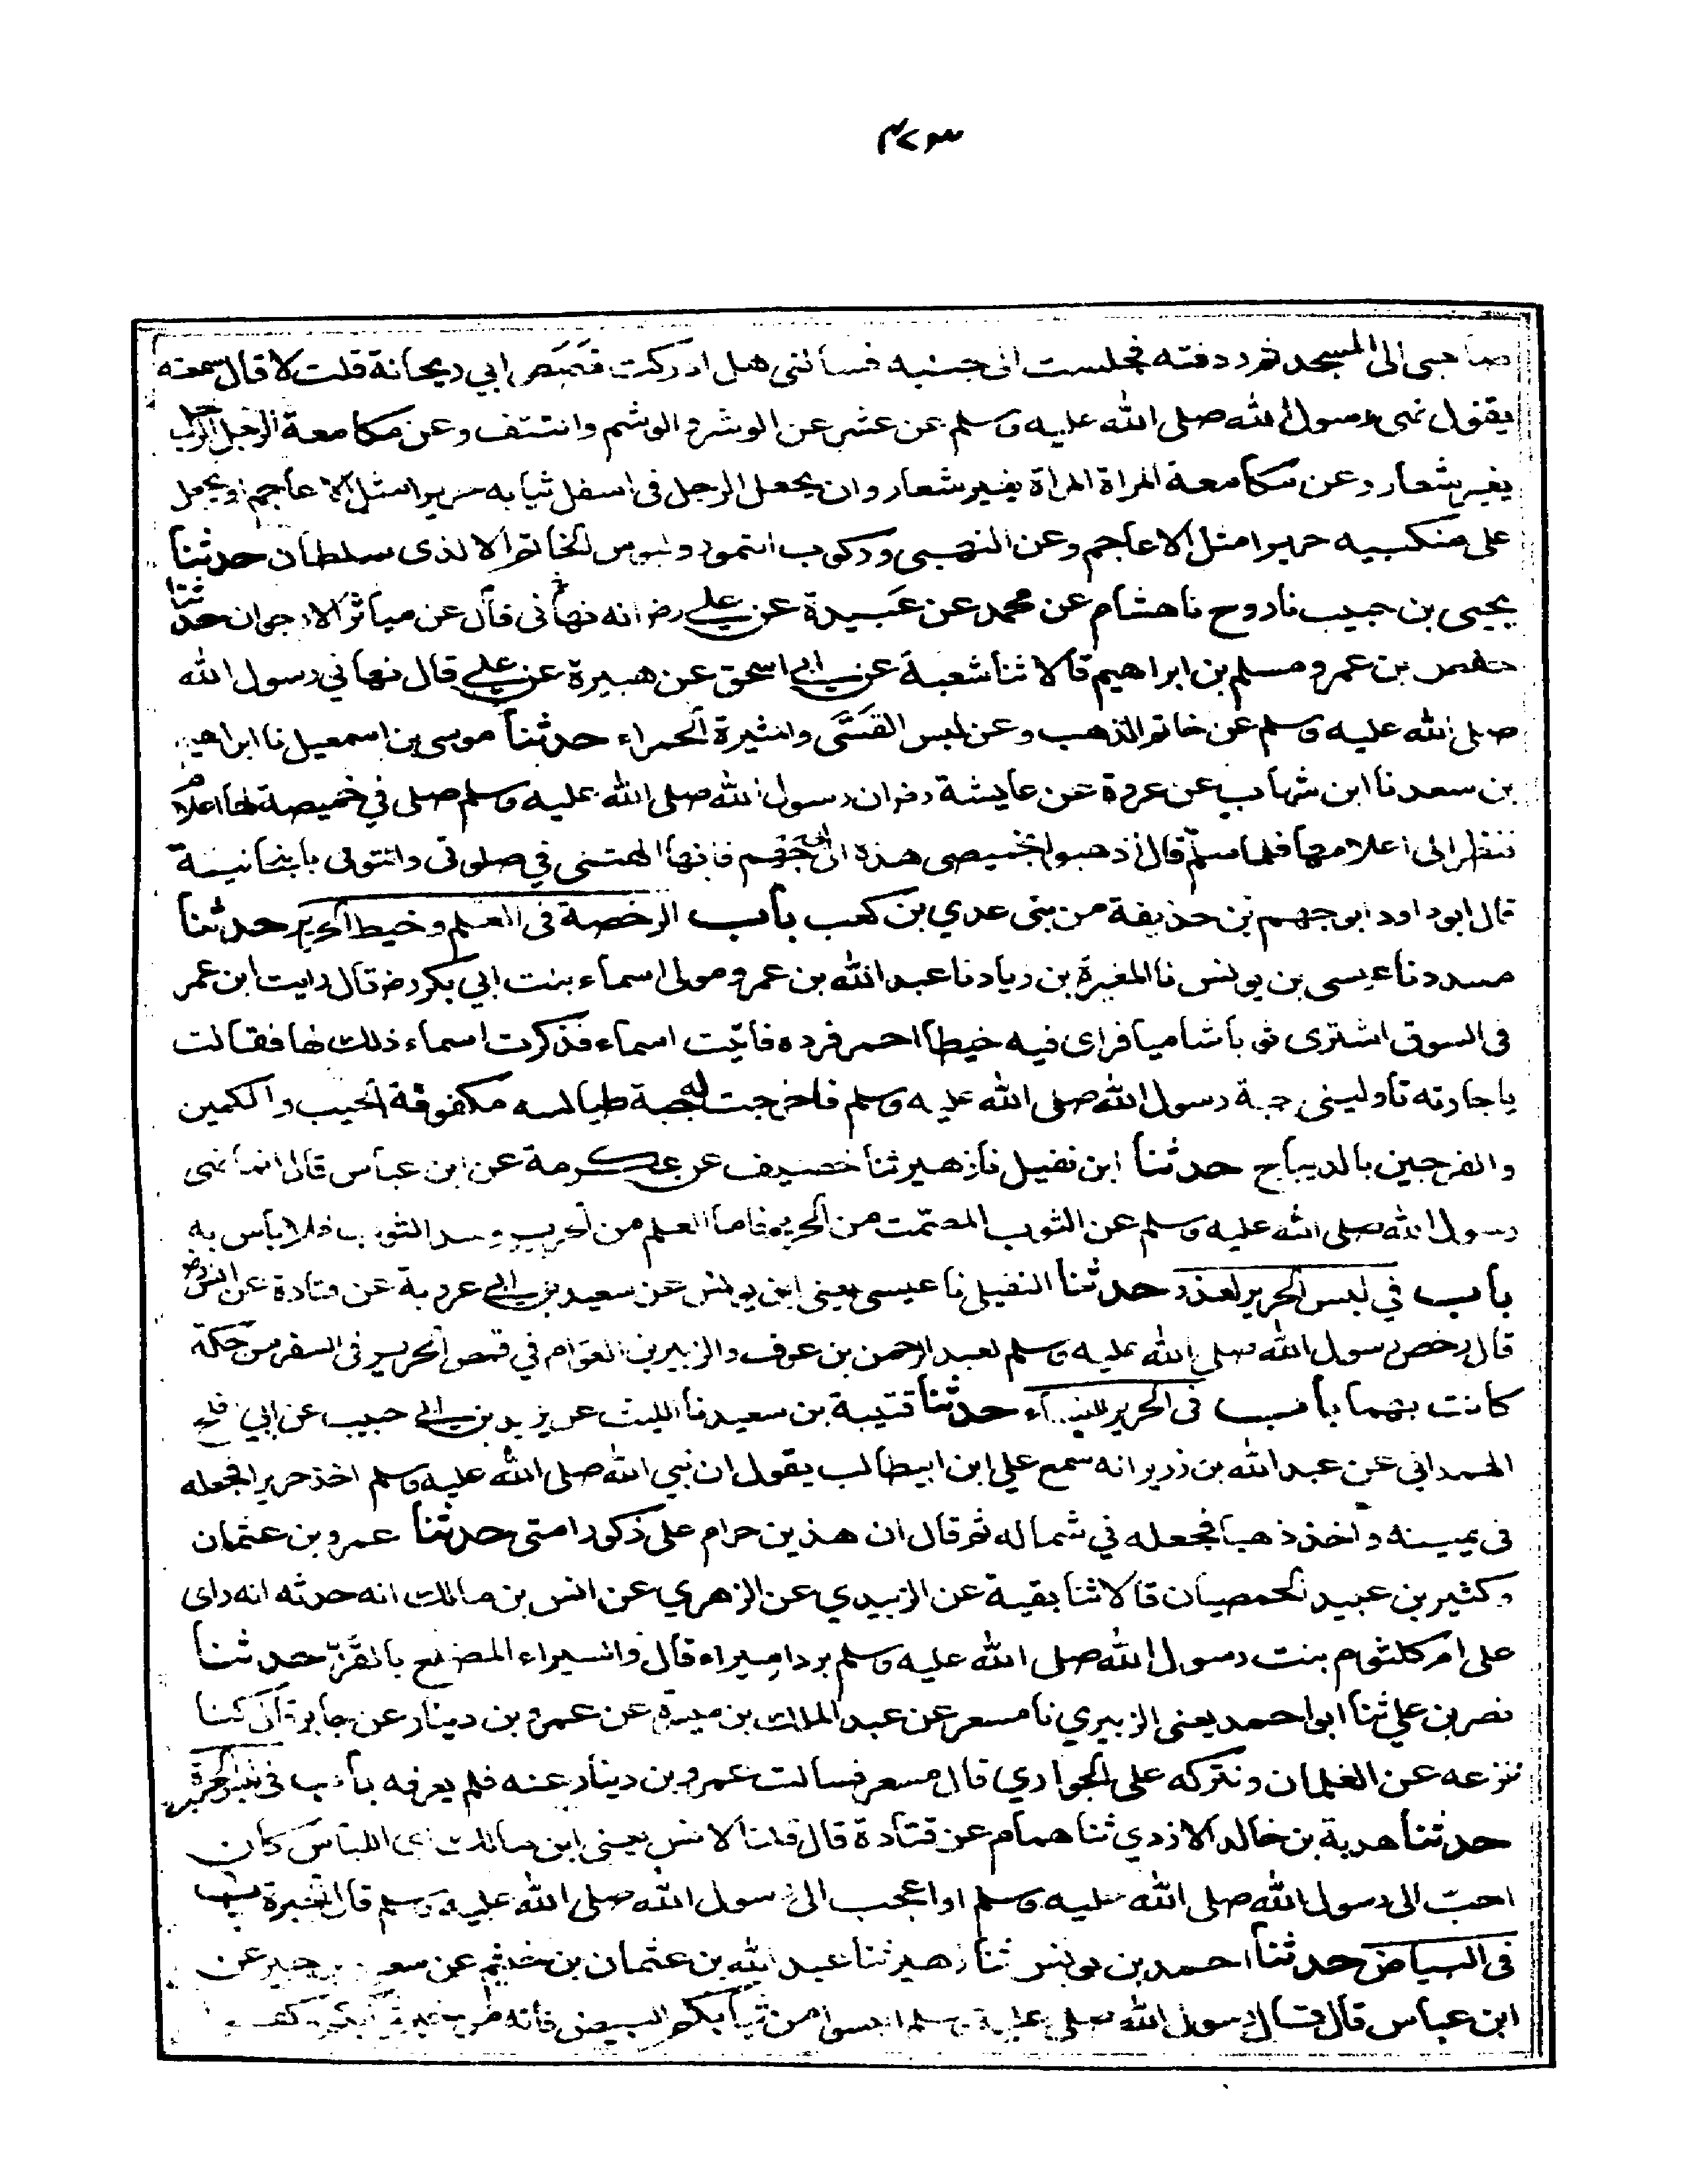 ٣٧٣
صاحبى الى المسجد ثم ردفته فجلست الى جنبه فسالنى هل ادركت قصص ابي ريحانة قلت لا قال سمعته
يقول نهى رسول الله صلى الله عليه وسلم عن عشر عن الوشر والوشم والنتف وعن مكامعة الرجل الرجل
بغير شعار وعن مكامعة المراة المراة بغير شعار وان يجعل الرجل فى اسفل ثيابه حريرا مثل الاعاجم او يجعل
على منكبيه حريرا مثل الاعاجم وعن النهبى وركوب النمور ولبوس الخاتم الا لذى سلطان حدثنا
يحيى بن حبيب نا روح نا هشام عن محمد عن عَبيدة عن علي رض انه نهانى قال عن مياثر الارجوان حدثنا
حفص بن عمر ومسلم بن ابراهيم قالا ثنا شعبة عن ابي اسحق عن هبيرة عن علي قال نهاني رسول الله
صلى الله عليه وسلم عن خاتم الذهب وعن لبس القَسَّى والمثيرة الحمراء حدثنا موسى بن اسمعيل نا ابراهيم
بن سعد نا ابن شهاب عن عروة عن عايشة رض ان رسول الله صلى الله عليه وسلم صلى في خميصة لها اعلام
فنظر الى اعلامها فلما سلّم قال اذهبوا بخميصى هذه الى ابى جهم فانها الهتنى في صلوتى واتونى بانبجانيّة
قال ابو داود ابو جهم بن حذيفة من بنى عدي بن كعب باب الرخصة فى العلم وخيط الحرير حدثنا
مسدد نا عيسى بن يونس نا المغيرة بن زياد نا عبد الله بن عمر ومولى اسماء بنت ابي بكر رض قال رايت ابن عمر
فى السوق اشترى ثوبا شاميا فراى فيه خيطا احمر فرده فاتيت اسماء فذكرت اسماء ذلك لها فقالت
يا جارته ناولينى جبة رسول الله صلى الله عليه وسلم فاخرجت له جبة طيالسه مكفوفة الجيب والكمين
والفرجين بالديباج حدثنا ابن نفيل نا زهير ثنا خصيف عن عكرمة عن ابن عباس قال انما نهى
رسول الله صلى الله عليه وسلم عن الثوب المصمّت من الحرير فاما العلم من الحرير وسد الثوب فلا باس به
باب في لبس الحرير لعذر حدثنا النفيلى نا عيسى يعنى ابن يونس عن سعيد بن ابي عروبة عن قتادة عن انس رض
قال رخص رسول الله صلى الله عليه وسلم لعبد الرحمن بن عوف والزبير بن العوّام في قمص الحرير فى السفر من حكّة
كانت بهما باب فى الحرير للنساء حدثنا قتيبة بن سعيد نا الليث عن يزيد بن ابي حبيب عن ابي افلح
الهمداني عن عبد الله بن زرير انه سمع علي ابن ابيطالب يقول ان نبي الله صلى الله عليه وسلم اخذ حريرا فجعله
فى يمينه واخذ ذهبا فجعله في شماله ثم قال ان هذين حرام على ذكور امتى حدثنا عمرو بن عثمان
وكثير بن عبيد الحمصيان قالا ثنا بقية عن الزبيدي عن الزهري عن انس بن مالك انه حدثه انه راى
على ام كلثوم بنت رسول الله صلى الله عليه وسلم بردا سيراء قال والسيراء المضلع بالقَزّ حدثنا
نصر بن علي ثنا ابو احمد يعنى الزبيري نا مسعر عن عبد الملك بن ميسرة عن عمرو بن دينار عن جابر قال كنا
ننزعه عن الغلمان ونتركه على الجواري قال مسعر فسالت عمرو بن دينار عنه فلم يعرفه باب فى لبس الحبرة
حدثنا هدبة بن خالد الازدي ثنا همام عن قتادة قال قلنا لانس يعنى ابن مالك اى اللباس كان
احبّ الى رسول الله صلى الله عليه وسلم او اعجب الى رسول الله صلى الله عليه وسلم قال الحبرة باب
فى البياض حدثنا احمد بن يونس ثنا زهير ثنا عبد الله بن عثمان بن خثيم عن سعيد بن جبير عن
ابن عباس قال قال رسول الله صلى الله عليه وسلم البسوا من ثيابكم البيض فانه من خير ثيابكم